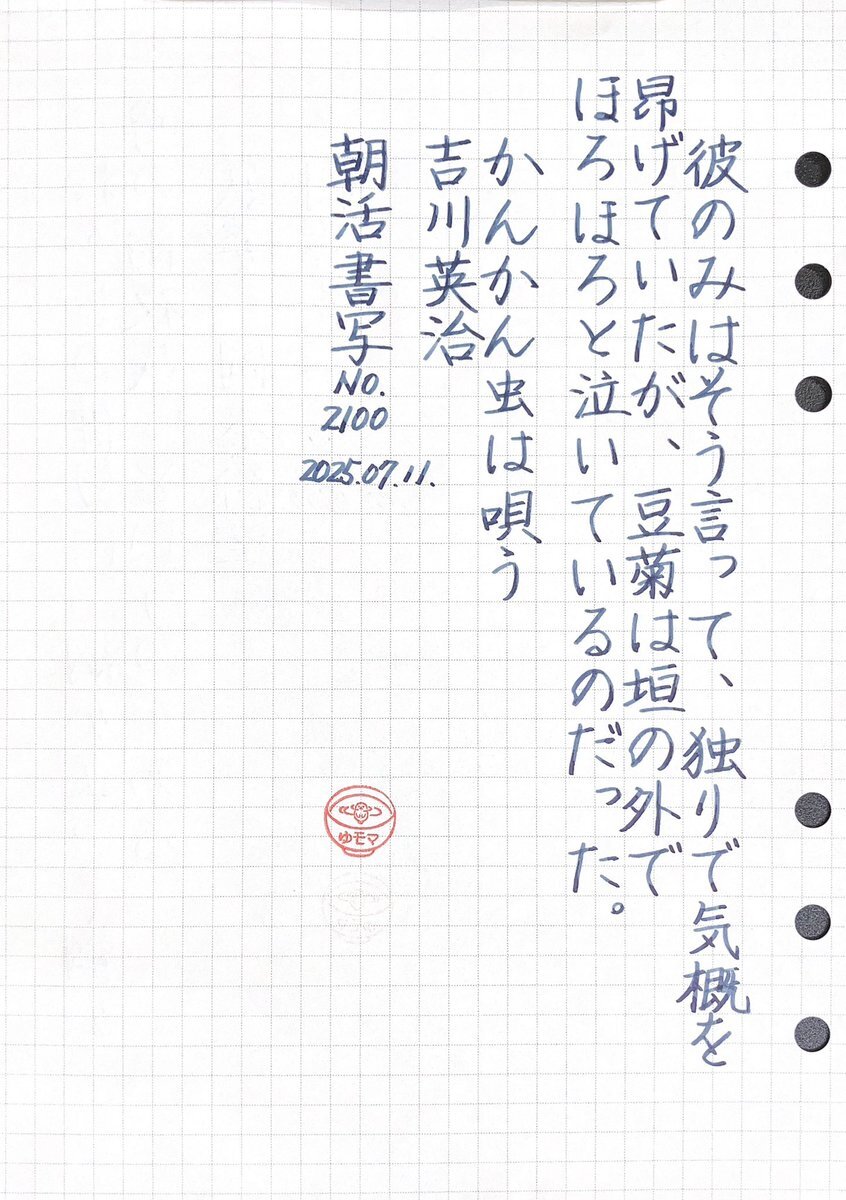 彼のみはそう言って、独りで気概を
昂げていたが、豆菊は垣の外で
ほろほろと泣いているのだった。
かんかん虫は唄う
吉川英治
朝活書写
NO.
2100
2025.07.11.
ゆモマ